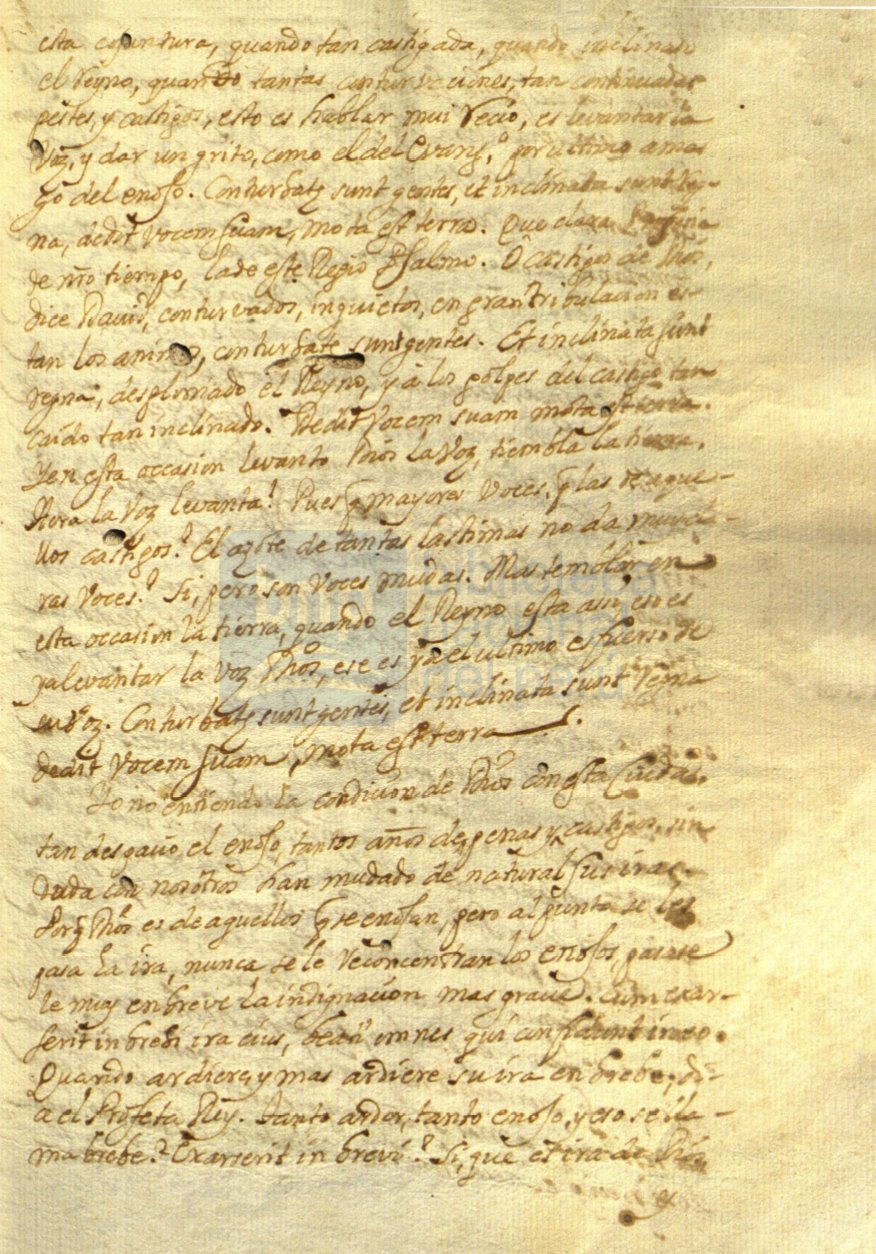 esta cojuntura, quando tan castigada, quando inclinado
el Reyno, quando tantas conturvaciones, tan continuadas
pestes, y castigos, esto es hablar mui recio, es levantar la
Voz, y dar un grito, como el del Evang.º por ultimo ama
go del enojo. Conturbatę sunt gentes, et inclinata sunt reg-
na, dedit vocem suam, mota est terra. Que clara
de nr̃o tiempo, la de este Regio Psalmo. O castigos de Dios,
dice David, conturvados, inquietos, en gran tribulacion es-
tan los animos, conturbate sunt gentes. Et inclinata sunt
regna, desplomado el Reyno, y â los golpes del castigo tan
caido tan inclinado. Dedit vocem suam mota est terra.
Y en esta occasion levanto Dios la Voz, tiembla la tierra.
Aora la Voz levanta? Pues q̃ mayores voces, q̃ las de aque-
llos castigos? El azote de tantas lastimas no da
ras voces? Si, pero son voces mudas. Mas temblar en
esta occasion la tierra, quando el Reyno esta assi, eso es
ya levantar la Voz Dios, ese es ya el ultimo esfuerso de
su Voz. Conturbatę sunt gentes, et inclinata sunt regna
dedit vocem suam, mota est terra.
Yo no entiendo la condicion de Dios con esta Ciudad,
tan despacio el enojo, tantos años de penas y castigos, sin
duda con nosotros han mudado de natural sus iras.
Porq̃ Dios es de aquellos q̃ se enojan, pero al punto se les
pasa la ira, nunca se le reconcentran los enojos, pasase
le muy en breve la indignacion mas grave. Cum exar-
serit in brebi ira eius, beati omnes qui confidunt in eo.
Quando ardiere, y mas ardiere su ira en brebe, di-
a el Profeta Rey. Tanto ardor, tanto enojo, y eso se lla-
ma brebe? Exarserit in brevi? Si, que et ira de Dios